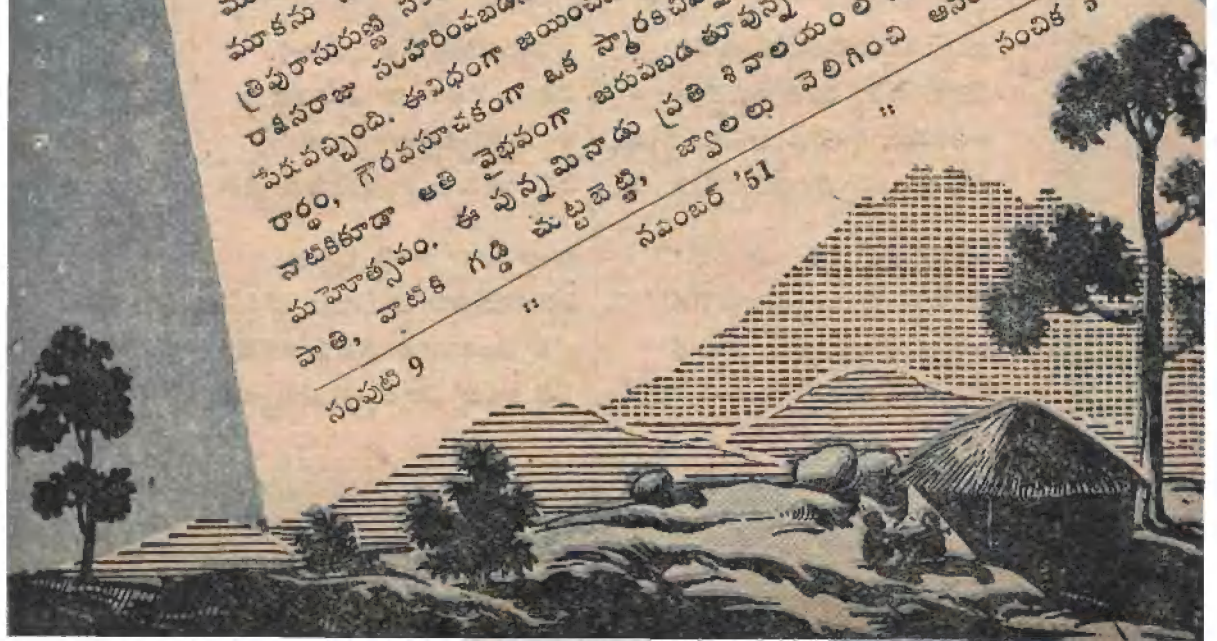 మూకను
త్రిపురాసురుణ్ణి
రాక్షసరాజు సంహరింపబడి
పేరువచ్చింది. ఈవిధంగా జయించి
రార్థం, గౌరవసూచకంగా ఒక స్మారకచిహ్న
నాటికికూడా అతి వైభవంగా జరుపబడుతూవున్న
మహోత్సవం. ఈ పున్నమినాడు ప్రతి శివాలయంలో
పాతి, వాటికి గడ్డి చుట్టబెట్టి, జ్వాలలు వెలిగించి
సంపుటి 9 :: నవంబర్ '51 :: సంచిక